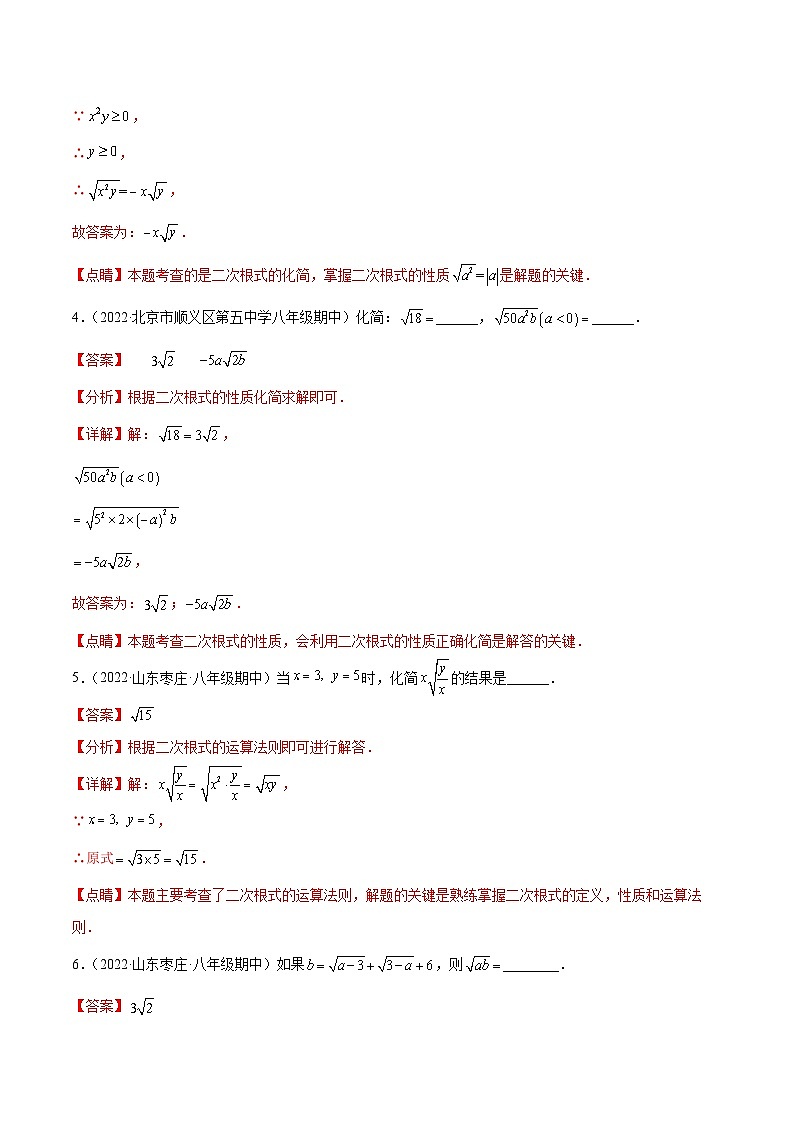 ∵ x²y≥0，
∴y≥0，
∴√(x²y)=−x√y，
故答案为：−x√y．
【点睛】本题考查的是二次根式的化简，掌握二次根式的性质√(a²)=|a|是解题的关键．
4．（2022·北京市顺义区第五中学八年级期中）化简：√18=______，√(50a²b)(a<0)=______．
【答案】 3√2 −5a√(2b)
【分析】根据二次根式的性质化简求解即可．
【详解】解：√18=3√2，
√(50a²b)(a<0)
=√(5²×2×(−a)²b)
=−5a√(2b)，
故答案为：3√2；−5a√(2b)．
【点睛】本题考查二次根式的性质，会利用二次根式的性质正确化简是解答的关键．
5．（2022·山东枣庄·八年级期中）当x=3，y=5时，化简x√(y/x)的结果是______．
【答案】√15
【分析】根据二次根式的运算法则即可进行解答．
【详解】解：x√(y/x)=√(x²·y/x)=√(xy)，
∵x=3，y=5，
∴原式=√(3×5)=√15．
【点睛】本题主要考查了二次根式的运算法则，解题的关键是熟练掌握二次根式的定义，性质和运算法
则．
6．（2022·山东枣庄·八年级期中）如果b=√(a−3)+√(3−a)+6，则√(ab)=________．
【答案】3√2